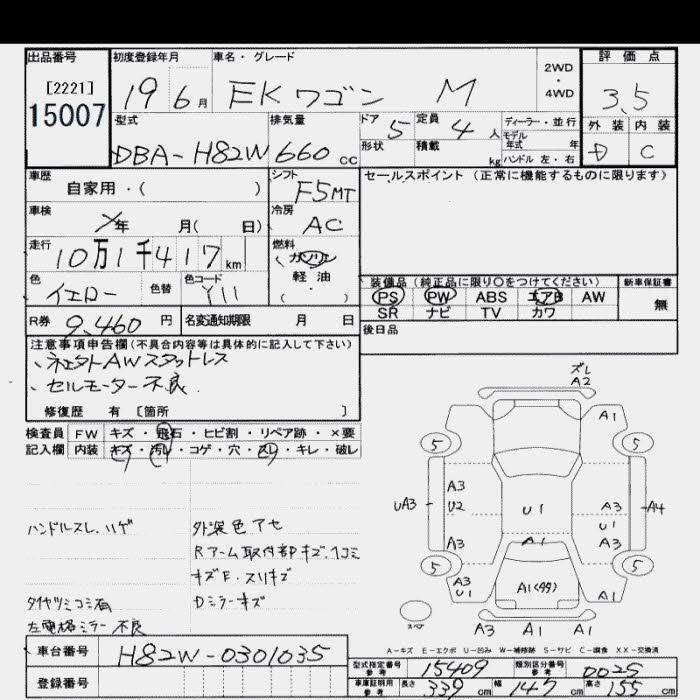 出品番号 初度登録年月 車名・グレード 2WD・4WD 評価点
[2221] 15007 19 6月 EKワゴン M 3.5
型式 排気量 ドア 定員 ディーラー・並行 外装 内装
DBA-H82W 660cc 5 4人 モデル年式 年 D C
形状 積載 kg ハンドル 左・右
車歴 シフト セールスポイント(正常に機能するものに限ります)
自家用・( ) F5MT
車検 冷房
年 月( 日) AC
走行 燃料
10万1千417km ガソリン
色 イエロー 色替 色コード Y11 軽・油 ( )
装備品(純正品に限り○をつけてください) 新車保証書
PS PW ABS エアB AW 無
SR ナビ TV カワ
R券 9,460円 名変通知期限 月 日 後日品
注意事項申告欄(不具合内容等は具体的に記入して下さい)
AWスタットレス
、セルモーター不良.
修復歴 有 [箇所 ]
検査員 FW キズ・飛石・ヒビ割・リペア跡・×要
記入欄 内装 キズ・汚レ・コゲ・穴・スレ・キレ・破レ
ハンドルスレ.ハゲ 外装色アセ
Rアーム取付部キズ.凹コミ
キズE.スリキズ
タイヤツミコミ有 Dミラーキズ
左電格ミラー不良
ズレ
A2
A1
5 5
UA3 A3 U2 A3 U1 A1 A3 U1 A3 A4
5 5
A3 U1 A1 A1
スペ A3 A1 A1
A-キズ E-エクボ U-凹み W-補修跡 S-サビ C-腐食 XX-交換済
車台番号 H82W-0301035
型式指定番号 参考 15409 類別区分番号 参考 0025
登録番号 車庫証明用 参考 長さ 339cm 幅 147cm 高さ 155cm